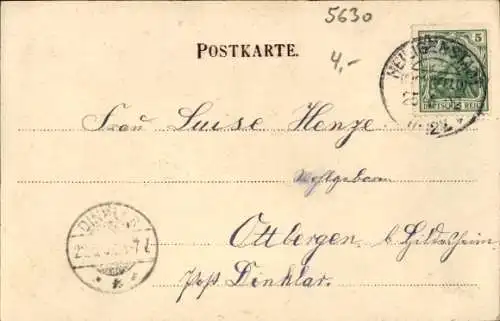 5630
POSTKARTE.
4,-
5
DEUTSCHES REICH
Frau Luise Henze
Wohlgeboren
DINKLAR
Ottbergen b. Hildesheim
Post Dinklar.